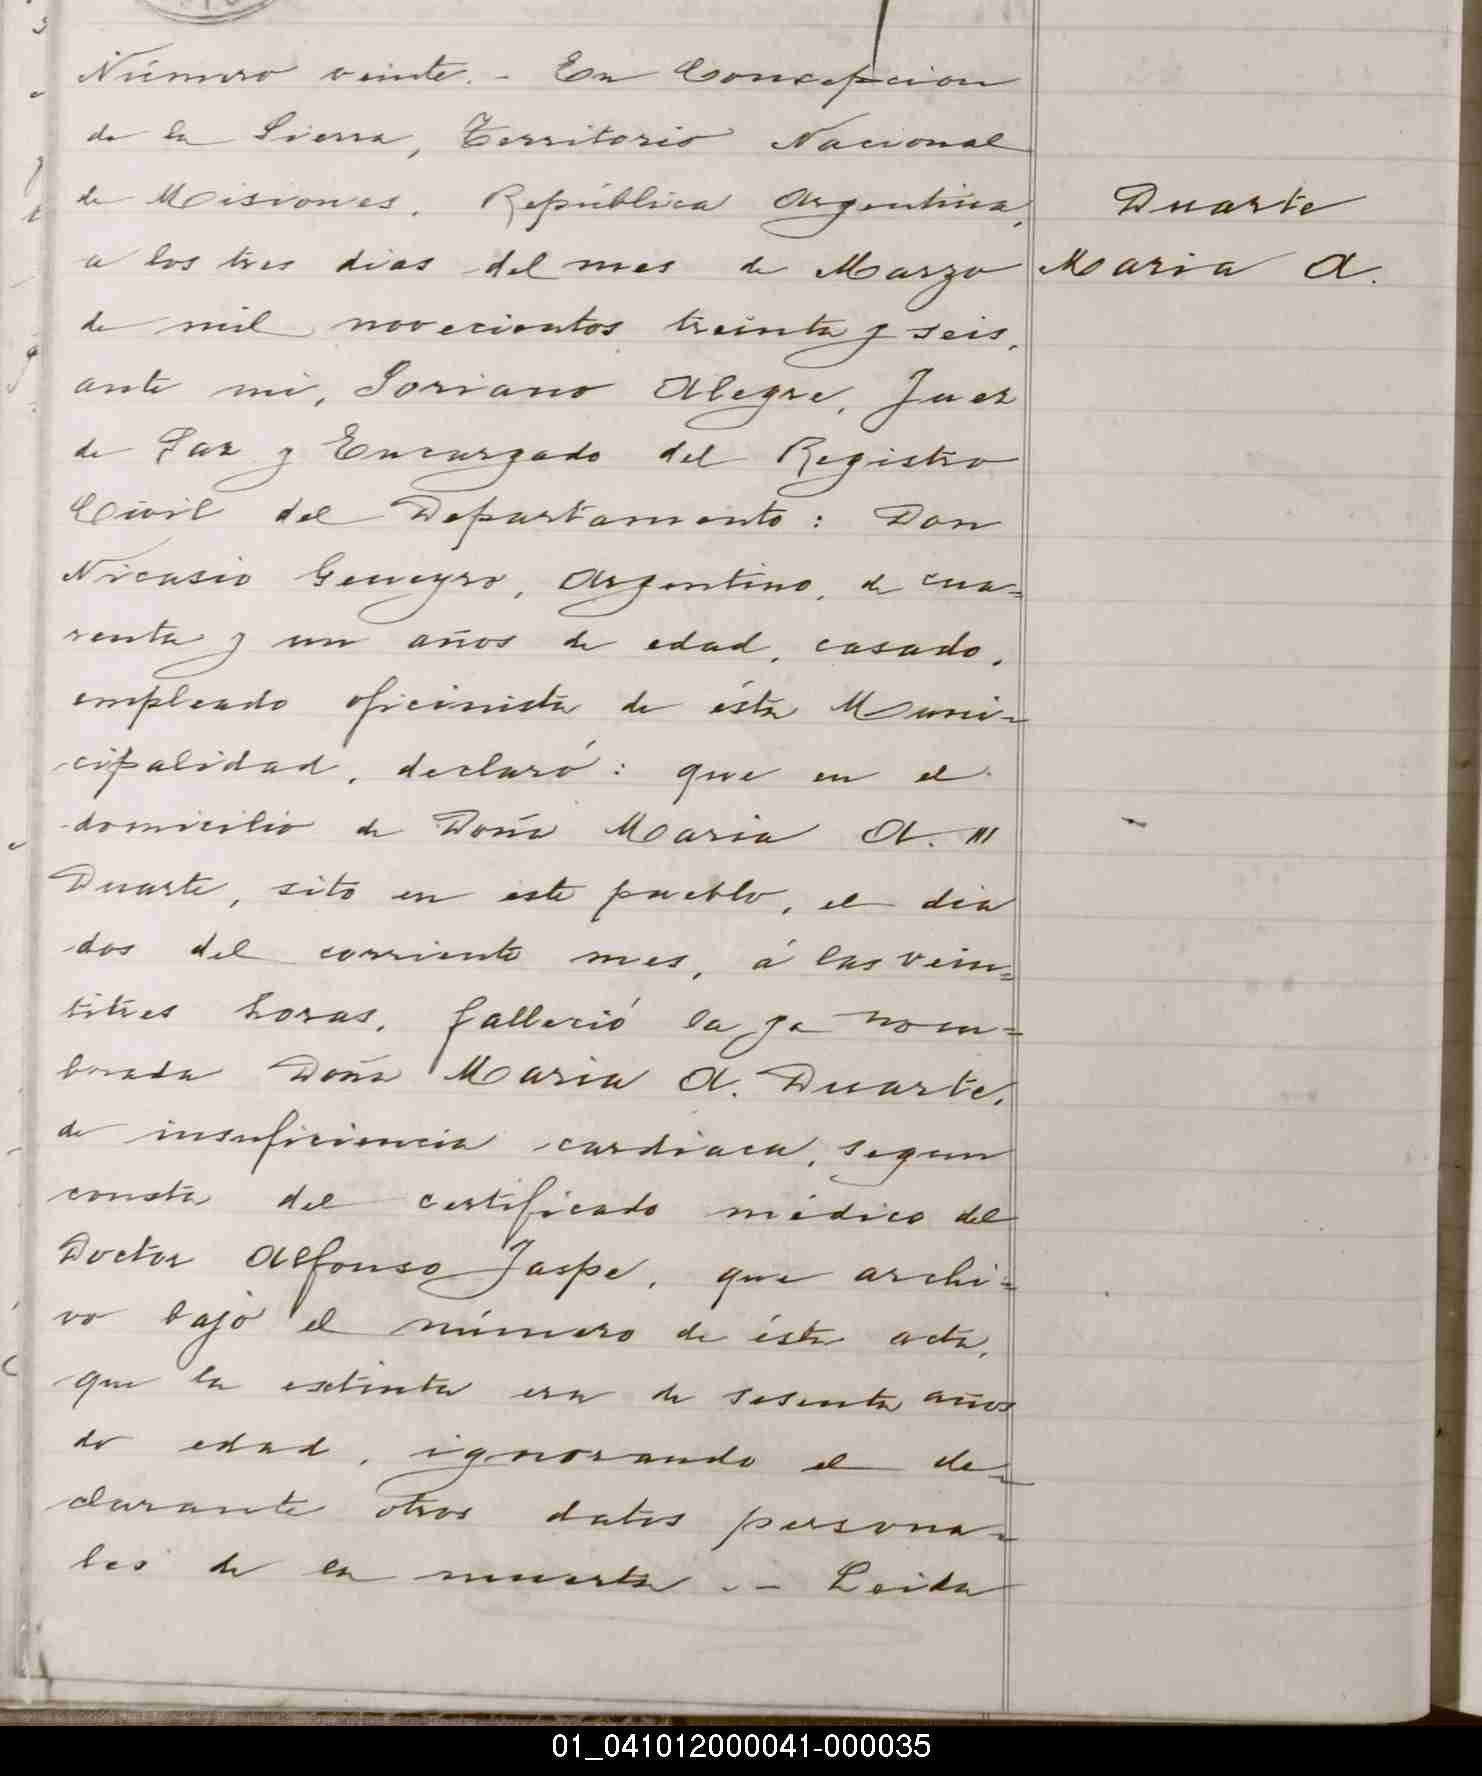 Número veinte. - En Concepcion
de la Sierra, Territorio Nacional
de Misiones, República Argentina,
Duarte
a los tres dias del mes de Marzo
Maria A.
de mil novecientos treinta y seis,
ante mi, Soriano Alegre, Juez
de Paz y Encargado del Registro
Civil del Departamento: Don
Nicasio Geneyro, Argentino, de cua=
renta y un años de edad, casado,
empleado oficinista de ésta Muni=
cipalidad, declaró: que en el
domicilio de Doña Maria A. "'
Duarte, sito en este pueblo, el dia
dos del corriente mes, á las vein=
titres horas, falleció la ya nom=
brada Doña Maria A. Duarte,
de insuficiencia cardiaca, segun
consta del certificado médico del
Doctor Alfonso Jaspe, que archi=
vo bajo el número de ésta acta,
que la extinta era de sesenta años
de edad, ignorando el de=
clarante otros datos persona=
les de la muerta. - Leida
01_041012000041-000035